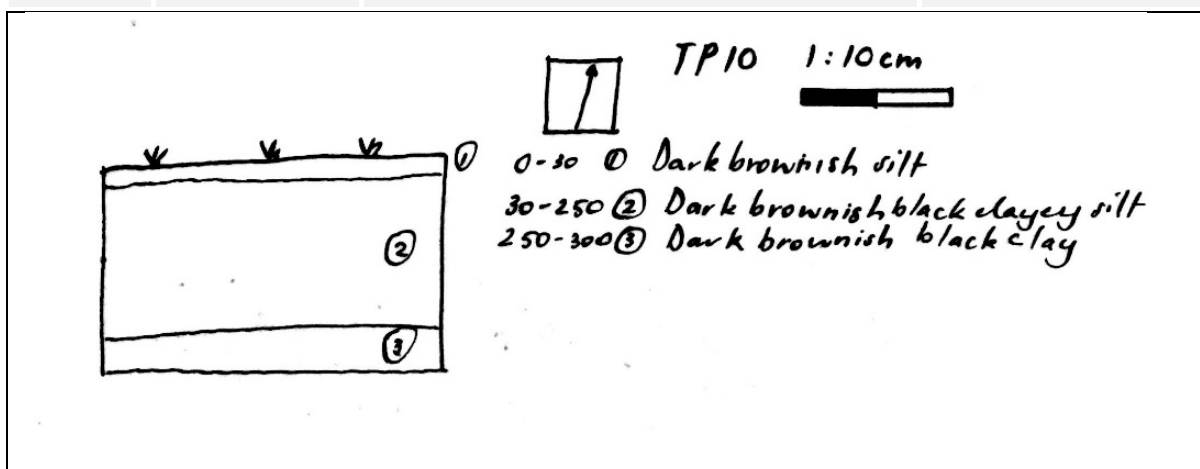 TP10 1:10cm
①
0-30 ① Dark brownish silt
30-250 ② Dark brownish black clayey silt
250-300 ③ Dark brownish black clay
②
③